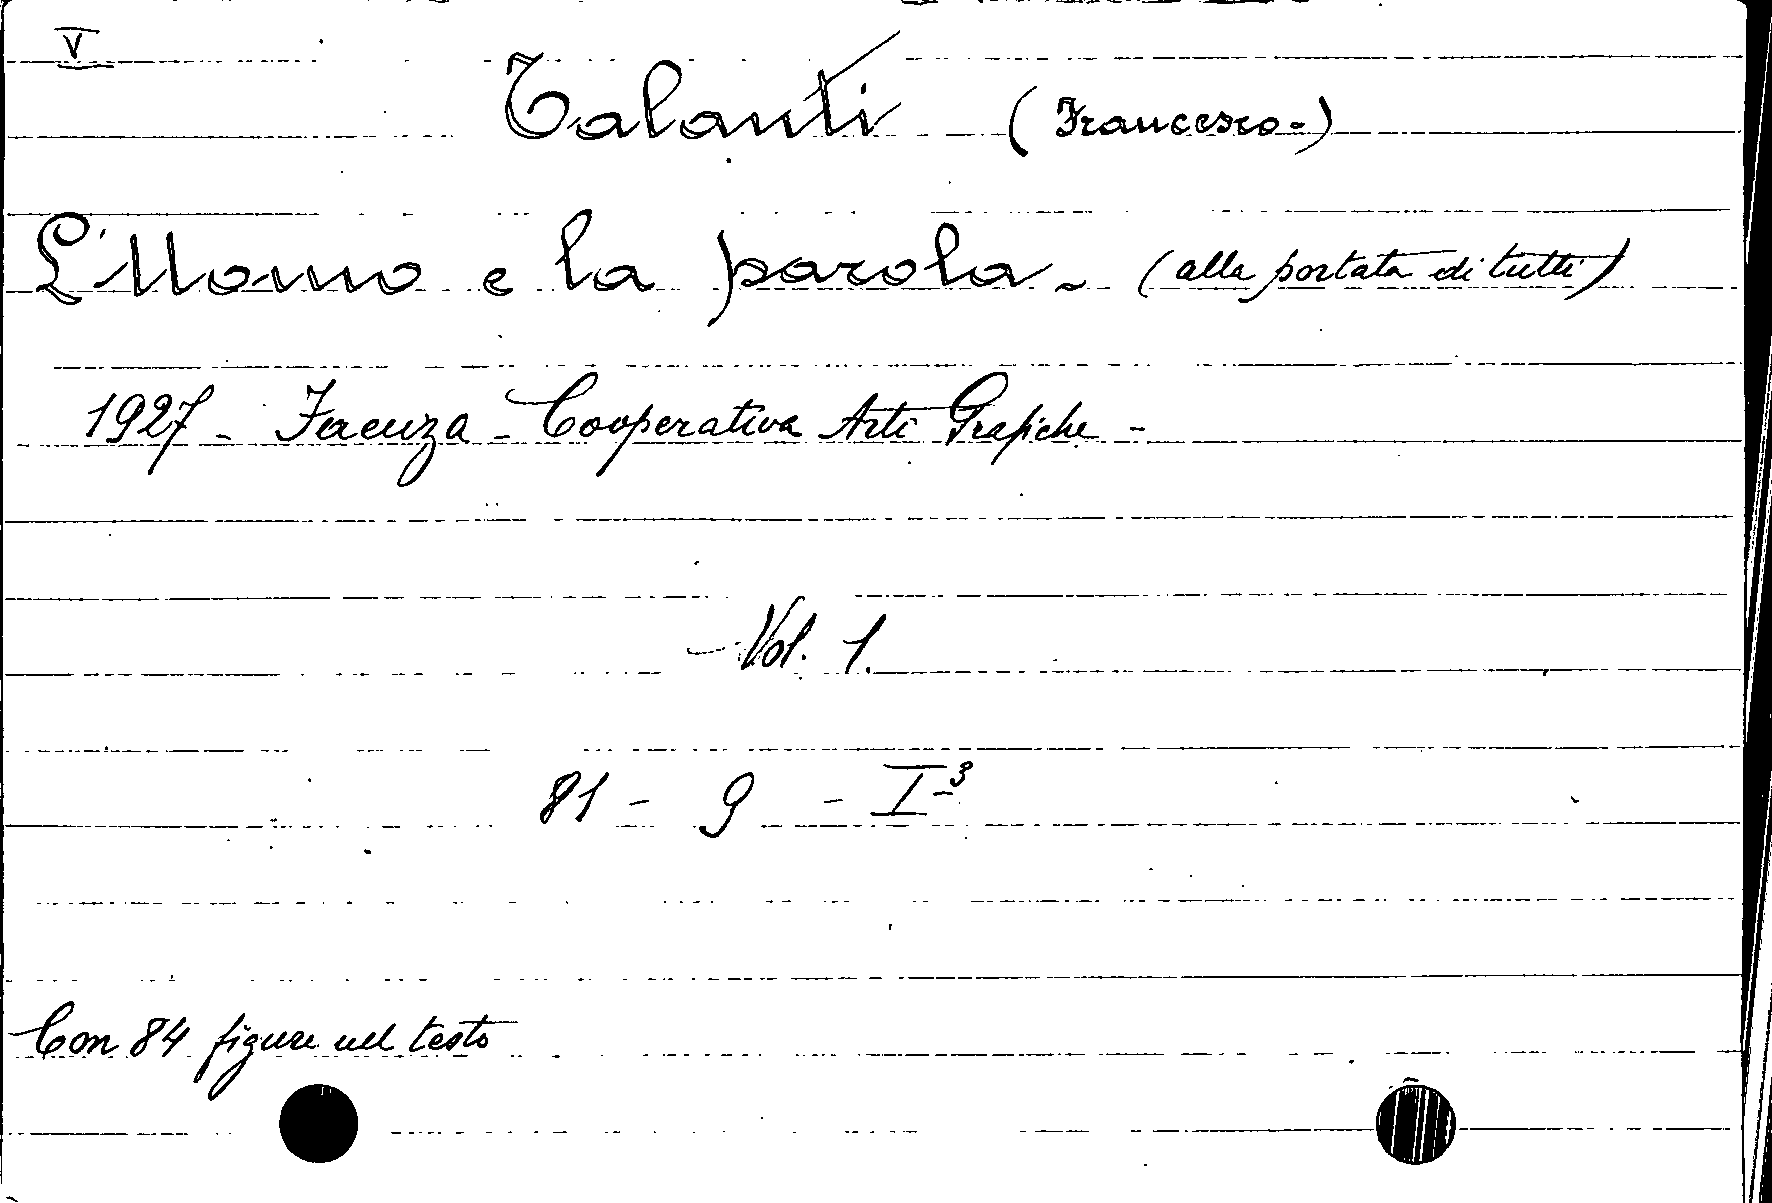 V
Talanti (Francesco-)
L'Uomo e la parola - (alla portata di tutti)
1927 - Faenza - Cooperativa Arti Grafiche -
- Vol. 1.
81 - 9 - I-3
Con 84 figure nel testo